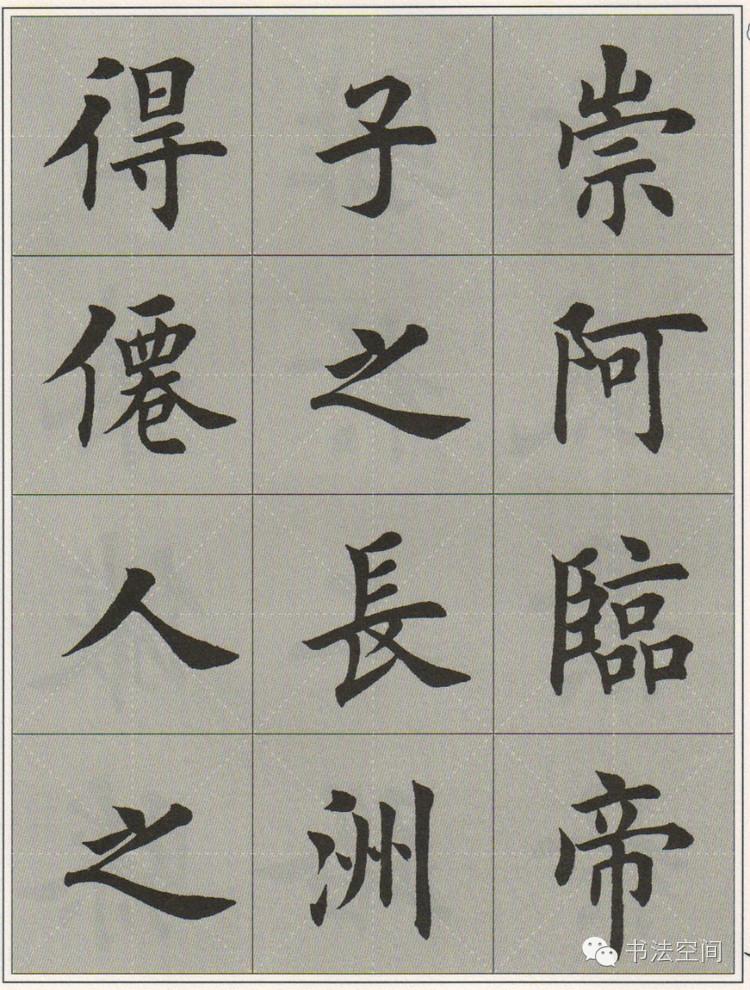 崇阿臨帝
子之長洲
得僊人之
书法空间